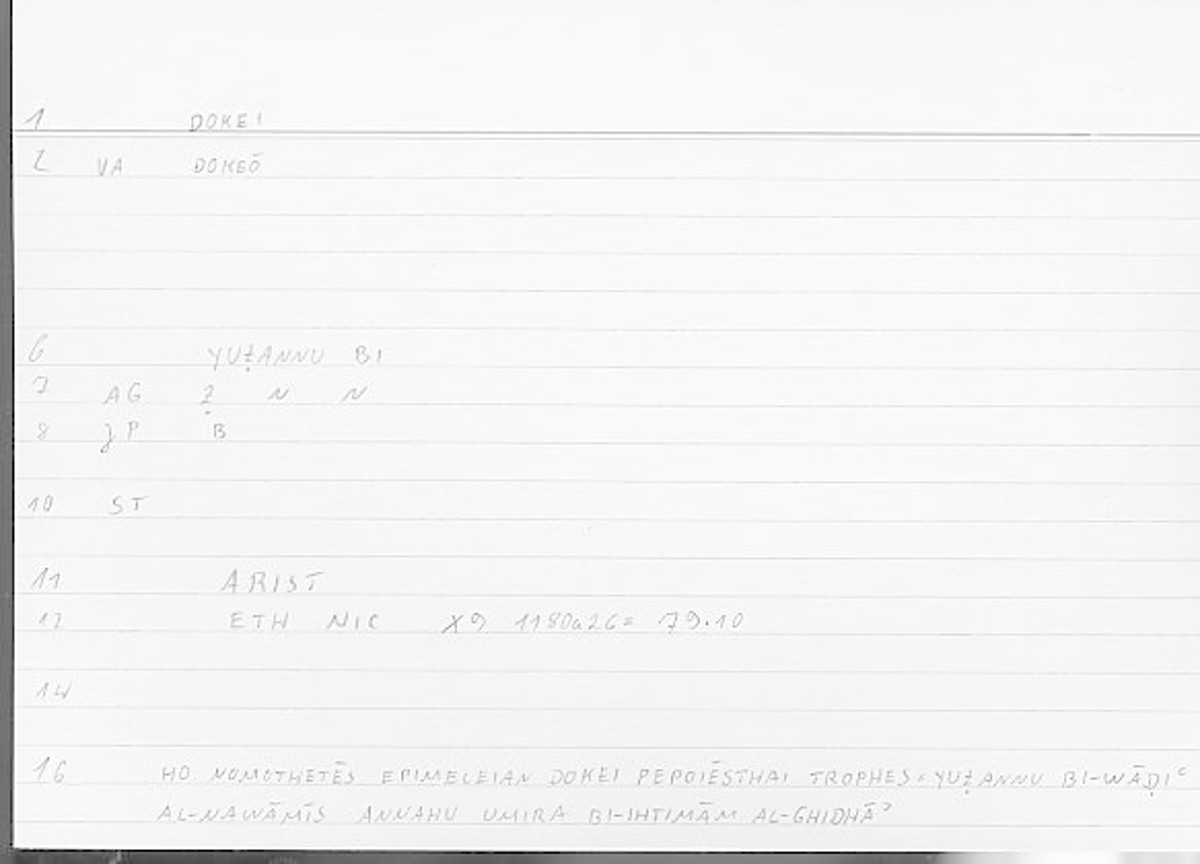 1 DOKEI
2 VA DOKEŌ
6 YUẒANNU BI
7 AG Ẓ N N
8 P B
10 ST
11 ARIST
12 ETH NIC X9 1180a26= 79.10
14
16 HO NOMOTHETĒS EPIMELEIAN DOKEI PEPOIĒSTHAI TROPHES = YUẒANNU BI-WĀḌIʿ
AL-NAWĀMĪS ANNAHU UMIRA BI-IHTIMĀM AL-GHIDHĀʾ